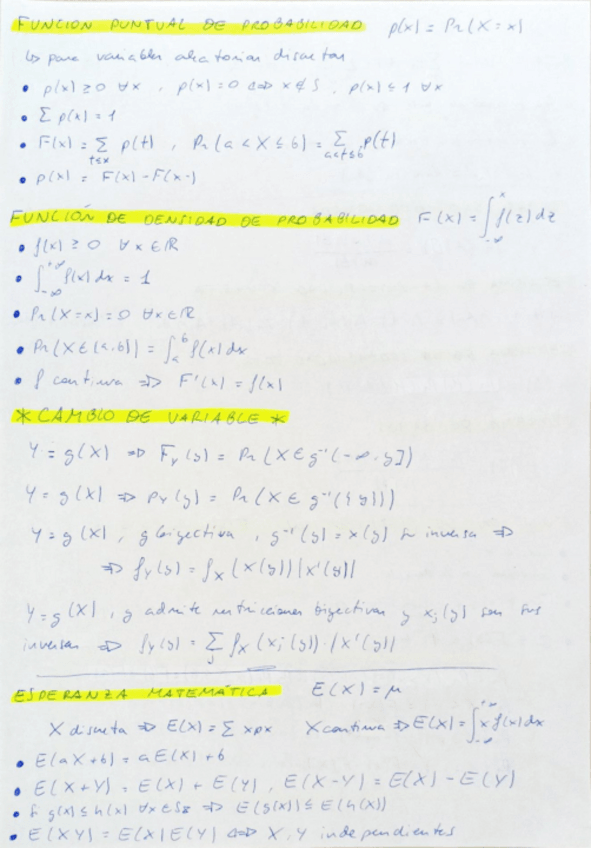 FUNCION PUNTUAL DE PROBABILIDAD p(x) = Pr(X = x)
↳ para variables aleatorias discretas
• p(x) ≥ 0 ∀x , p(x) = 0 ⟺ x ∉ S , p(x) ≤ 1 ∀x
• Σ p(x) = 1
• F(x) = Σ_{t≤x} p(t) , Pr(a < X ≤ b) = Σ_{a<t≤b} p(t)
• p(x) = F(x) - F(x-)
FUNCIÓN DE DENSIDAD DE PROBABILIDAD F(x) = ∫_{-∞}^{x} f(z) dz
• f(x) ≥ 0 ∀x ∈ ℝ
• ∫_{-∞}^{+∞} f(x) dx = 1
• Pr(X = x) = 0 ∀x ∈ ℝ
• Pr(X ∈ (a,b)) = ∫_a^b f(x) dx
• f continua ⇒ F'(x) = f(x)
* CAMBIO DE VARIABLE *
Y = g(X) ⇒ F_Y(y) = Pr(X ∈ g⁻¹(-∞,y])
Y = g(X) ⇒ p_Y(y) = Pr(X ∈ g⁻¹({y}))
Y = g(X) , g biyectiva , g⁻¹(y) = x(y) su inversa ⇒
⇒ f_Y(y) = f_X(x(y)) |x'(y)|
Y = g(X) , g admite restricciones biyectivas y x_j(y) son sus
inversas ⇒ f_Y(y) = Σ_j f_X(x_j(y)) · |x'(y)|
ESPERANZA MATEMÁTICA E(X) = μ
X discreta ⇒ E(X) = Σ x p_x X continua ⇒ E(X) = ∫_{-∞}^{+∞} x f(x) dx
• E(aX+b) = aE(X) + b
• E(X+Y) = E(X) + E(Y) , E(X-Y) = E(X) - E(Y)
• Si g(x) ≤ h(x) ∀x ∈ S_x ⇒ E(g(x)) ≤ E(h(x))
• E(XY) = E(X)E(Y) ⟺ X, Y independientes